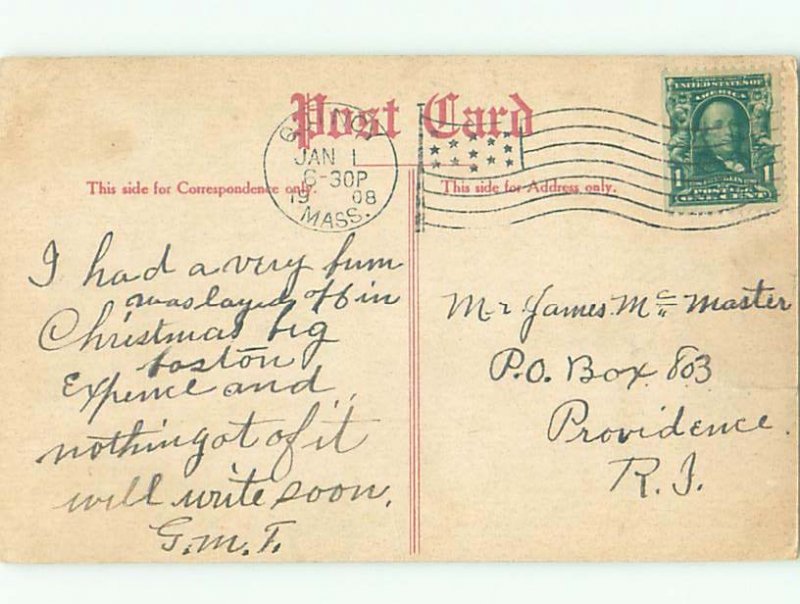 Post Card
QUINCY
JAN 1
6-30P
19 08
MASS.
UNITED STATES OF
AMERICA
1 1
ONE CENT
This side for Correspondence only.
This side for Address only.
I had a very bum
was layed off in
Christmas big
boston
Expence and
nothing at of it
will write soon.
G.M.T.
Mr James Mc Master
P.O. Box 803
Providence.
R.I.